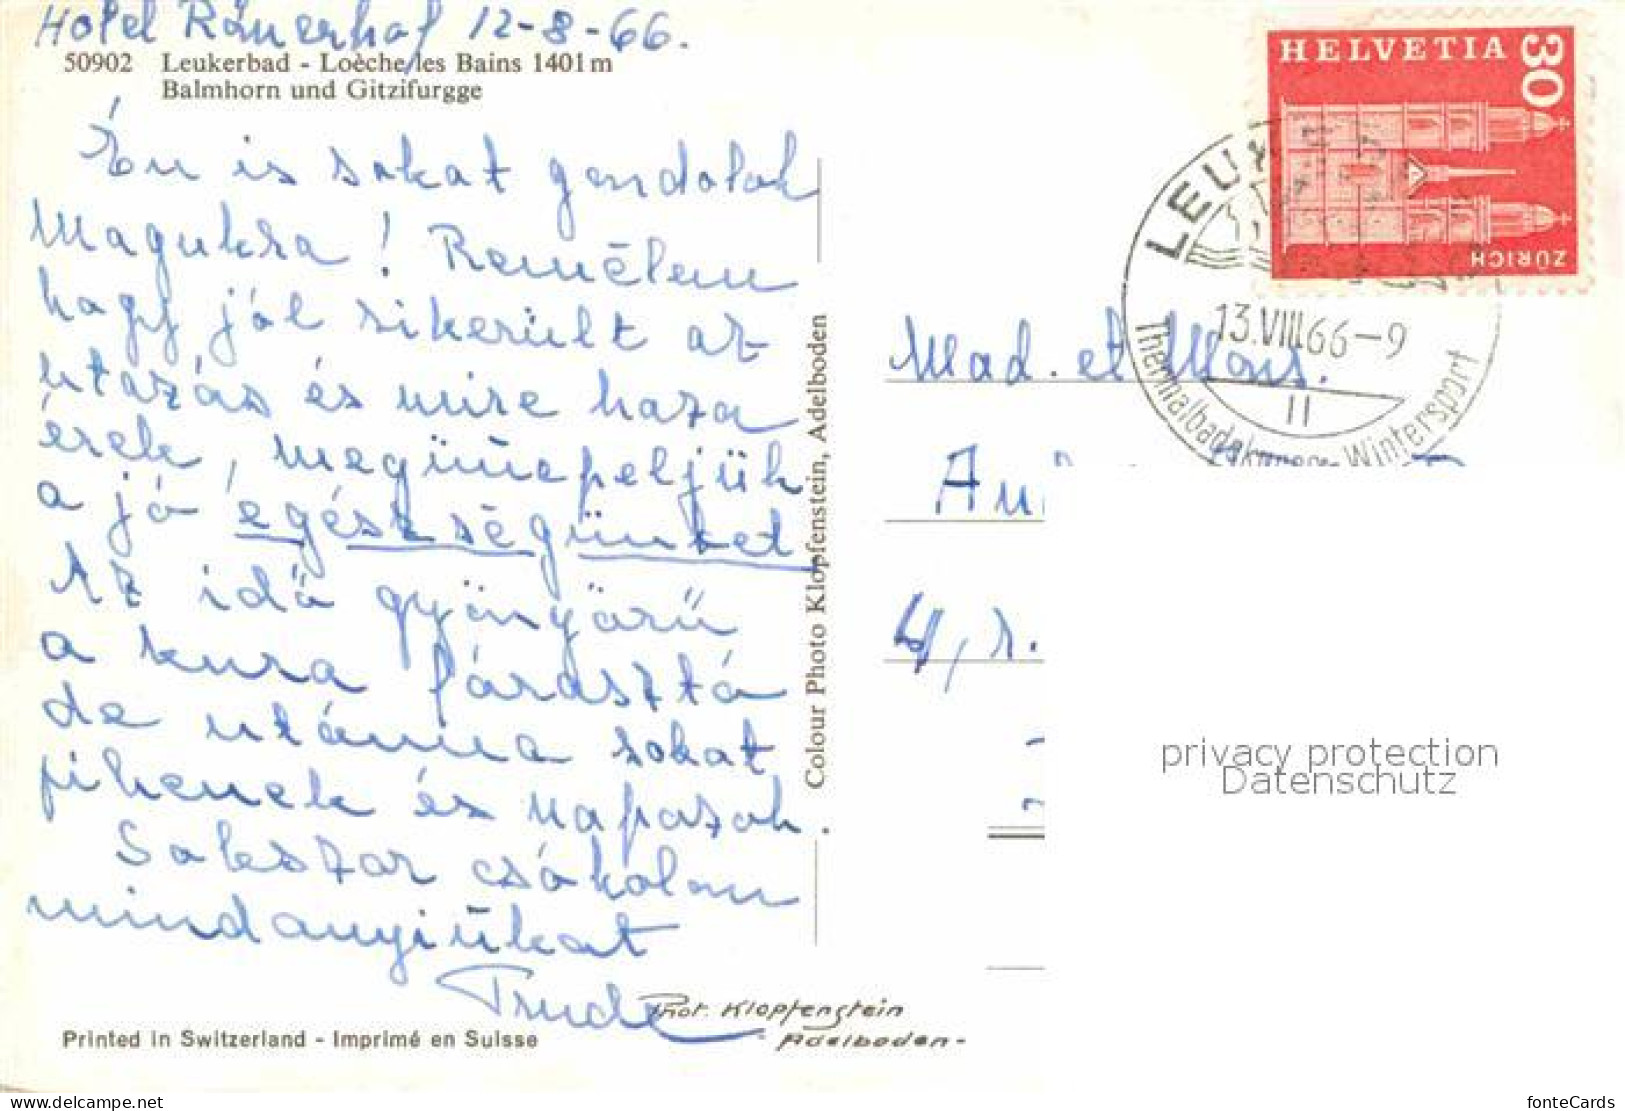 Hotel Römerhof 12-8-66.
50902 Leukerbad - Loèche les Bains 1401 m
Balmhorn und Gitzifurgge
Én is sokat gondolok
Magukra! Remélem
hogy jól sikerült az
utazás és mire haza
érek, megünnepeljük
a jó egészségünket
Az idő gyönyörű
a kura fárasztó
de utánna sokat
pihenek és napozok.
Sokszor csókolom
mindanyiukat
Trude
Colour Photo Klopfenstein, Adelboden
Phot. Klopfenstein
Adelboden-
Printed in Switzerland - Imprimé en Suisse
HELVETIA
30
ZÜRICH
LEUK
13.VIII.66-9
Thermalbadekuren Wintersport
Mad. et Mons.
privacy protection
Datenschutz
https://www.delcampe.net
fonteCards